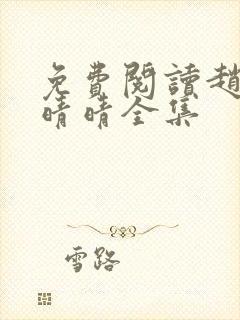 免費閱讀趙
晴晴全集
雪路